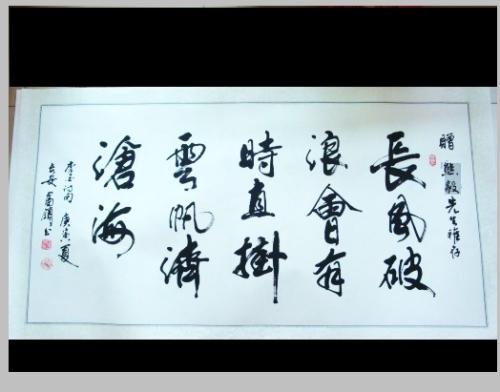 贈 先生雅存
長風破
浪會有
時直掛
雲帆濟
滄海
李白詩 庚寅夏